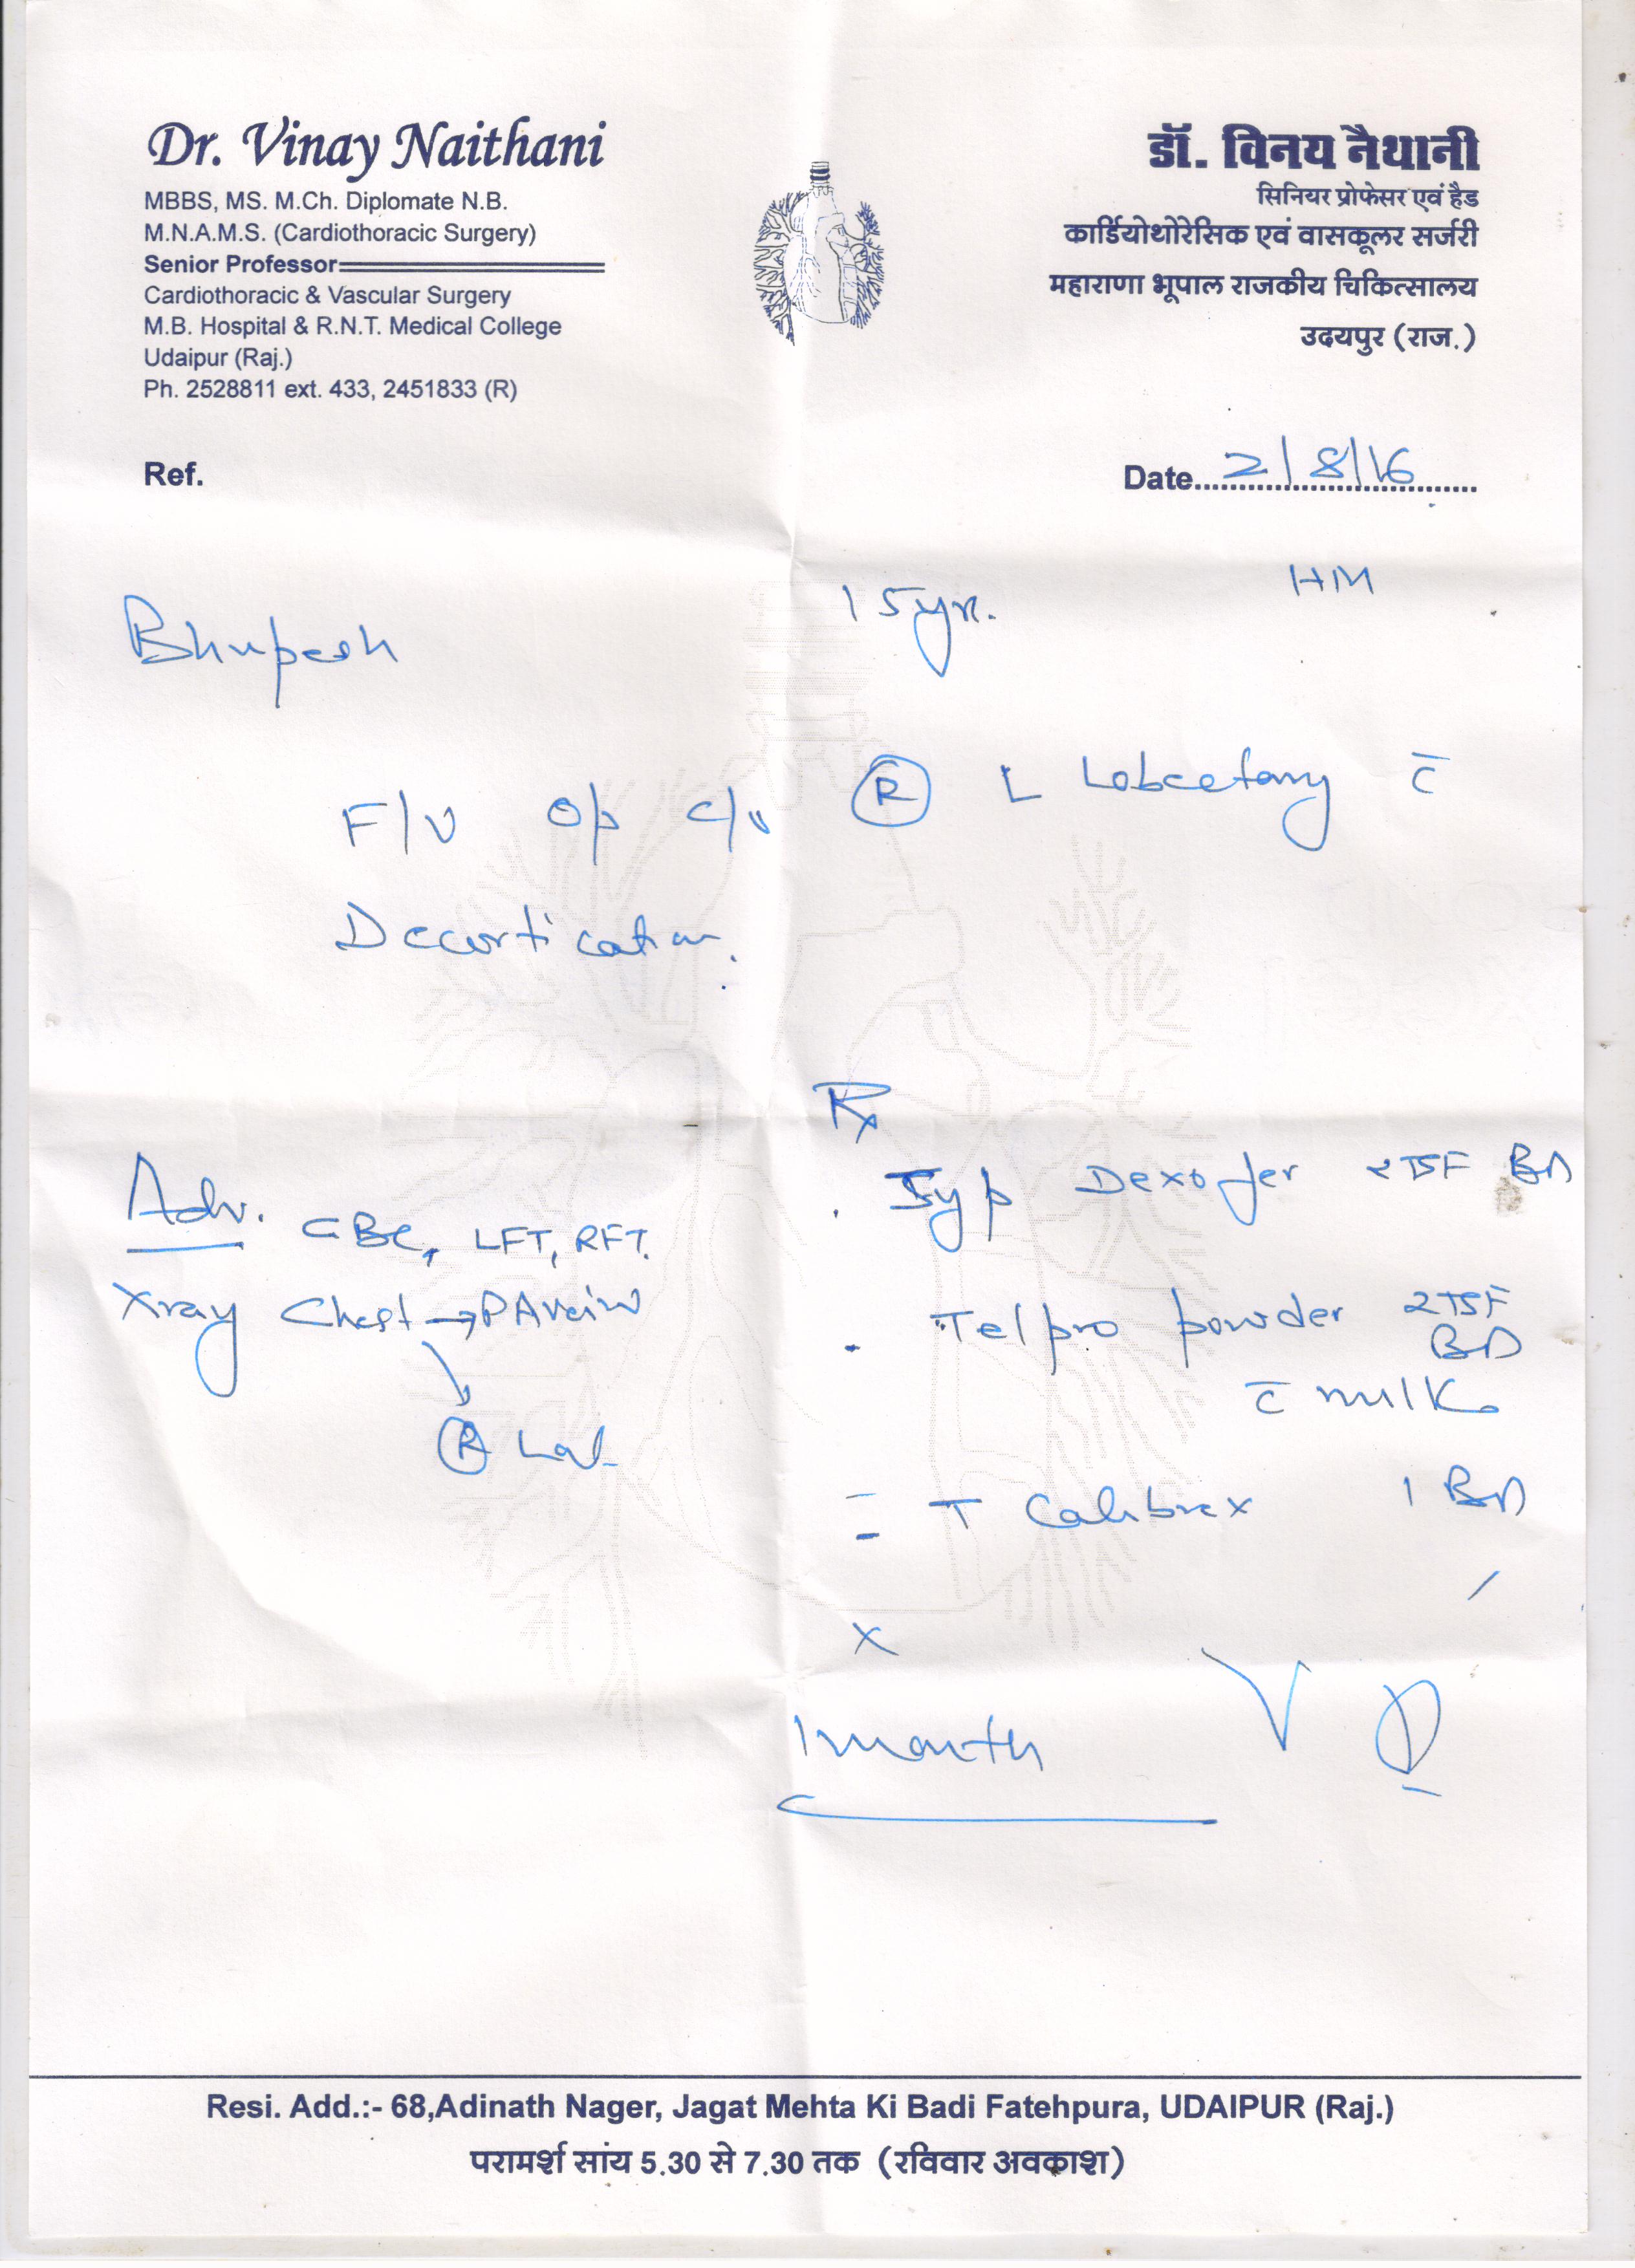 Dr. Vinay Naithani
MBBS, MS. M.Ch. Diplomate N.B.
M.N.A.M.S. (Cardiothoracic Surgery)
Senior Professor
Cardiothoracic & Vascular Surgery
M.B. Hospital & R.N.T. Medical College
Udaipur (Raj.)
Ph. 2528811 ext. 433, 2451833 (R)
डॉ. विनय नैथानी
सिनियर प्रोफेसर एवं हैड
कार्डियोथोरेसिक एवं वासकूलर सर्जरी
महाराणा भूपाल राजकीय चिकित्सालय
उदयपुर (राज.)
Ref.
Date 2/8/16
Bhupesh 15yr. HM
F/U O/p c/o Ⓡ L Lobectomy c̄
Decortication.
Adv. CBC, LFT, RFT.
Xray Chest → PA veiw
Ⓡ Lat
Rx
Syp Dexofer 2TSF BD
Telpro powder 2TSF
BD
c̄ milk
T Calibrex 1 BD
x
1 month
Resi. Add.:- 68,Adinath Nager, Jagat Mehta Ki Badi Fatehpura, UDAIPUR (Raj.)
परामर्श सांय 5.30 से 7.30 तक (रविवार अवकाश)